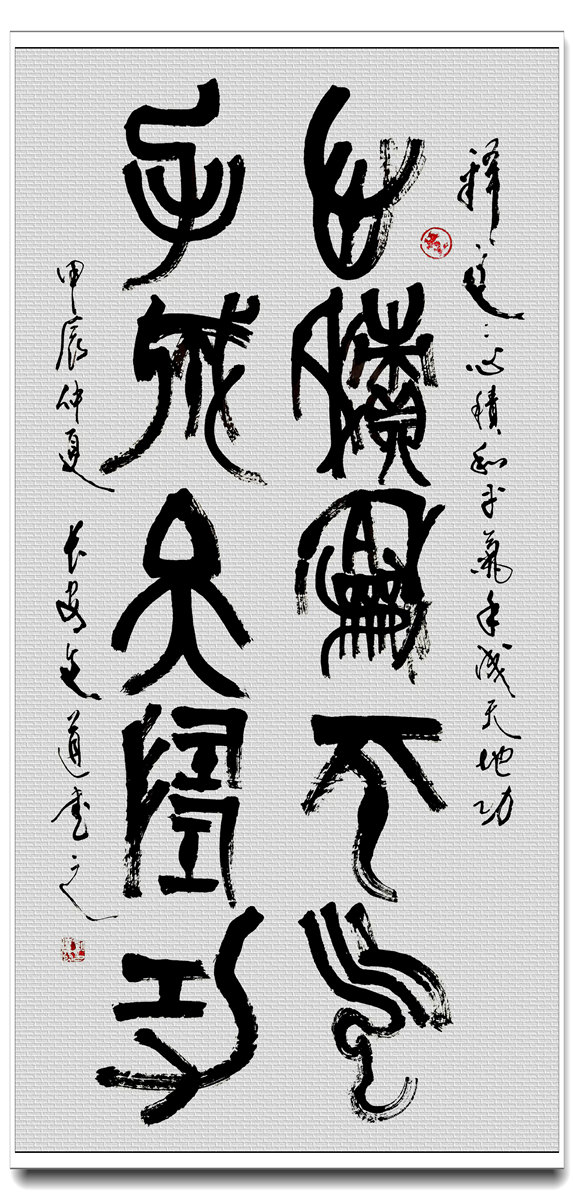 释文:心積和平氣手成天地功
心積龢平氣
手成天地功
甲辰仲夏 长安文道书之